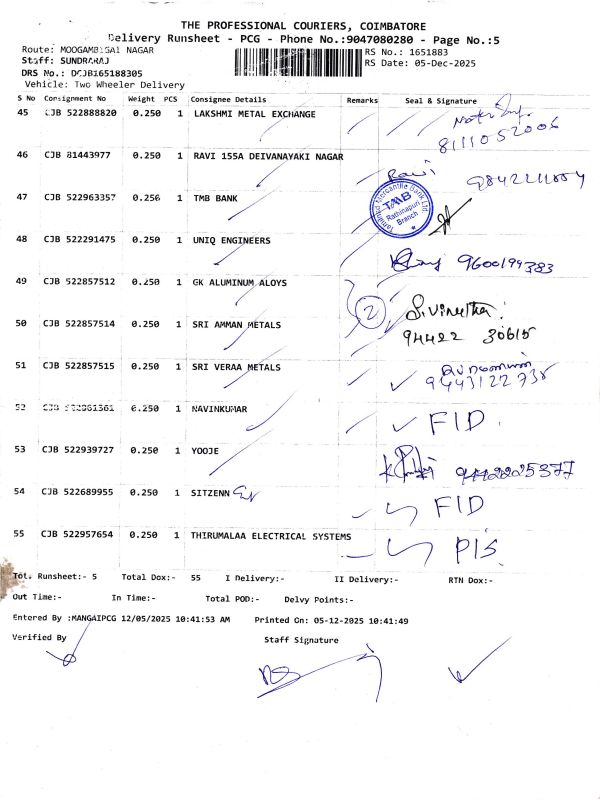 THE PROFESSIONAL COURIERS, COIMBATORE
Delivery Runsheet - PCG - Phone No.:9047080280 - Page No.:5
Route: MOOGAMBIGAI NAGAR
RS No.: 1651883
Staff: SUNDRARAJ
RS Date: 05-Dec-2025
DRS No.: DCJB165188305
Vehicle: Two Wheeler Delivery
S No Consignment No Weight PCS Consignee Details Remarks Seal & Signature
45 CJB 522888820 0.250 1 LAKSHMI METAL EXCHANGE
8111052006
46 CJB 81443977 0.250 1 RAVI 155A DEIVANAYAKI NAGAR
Ravi
47 CJB 522963357 0.256 1 TMB BANK
Tamilnad Mercantile Bank Ltd
TMB
Rathinapuri
Branch
48 CJB 522291475 0.250 1 UNIQ ENGINEERS
9600199383
49 CJB 522857512 0.250 1 GK ALUMINUM ALOYS
2
50 CJB 522857514 0.250 1 SRI AMMAN METALS
94422 30615
51 CJB 522857515 0.250 1 SRI VERAA METALS
9443122738
52 CJB 0.250 1 NAVINKUMAR
FID
53 CJB 522939727 0.250 1 YOOJE
9442225377
54 CJB 522689955 0.250 1 SITZENN
FID
55 CJB 522957654 0.250 1 THIRUMALAA ELECTRICAL SYSTEMS
P/S
Tot. Runsheet:- 5 Total Dox:- 55 I Delivery:- II Delivery:- RTN Dox:-
Out Time:- In Time:- Total POD:- Delvy Points:-
Entered By :MANGAIPCG 12/05/2025 10:41:53 AM Printed On: 05-12-2025 10:41:49
Verified By Staff Signature